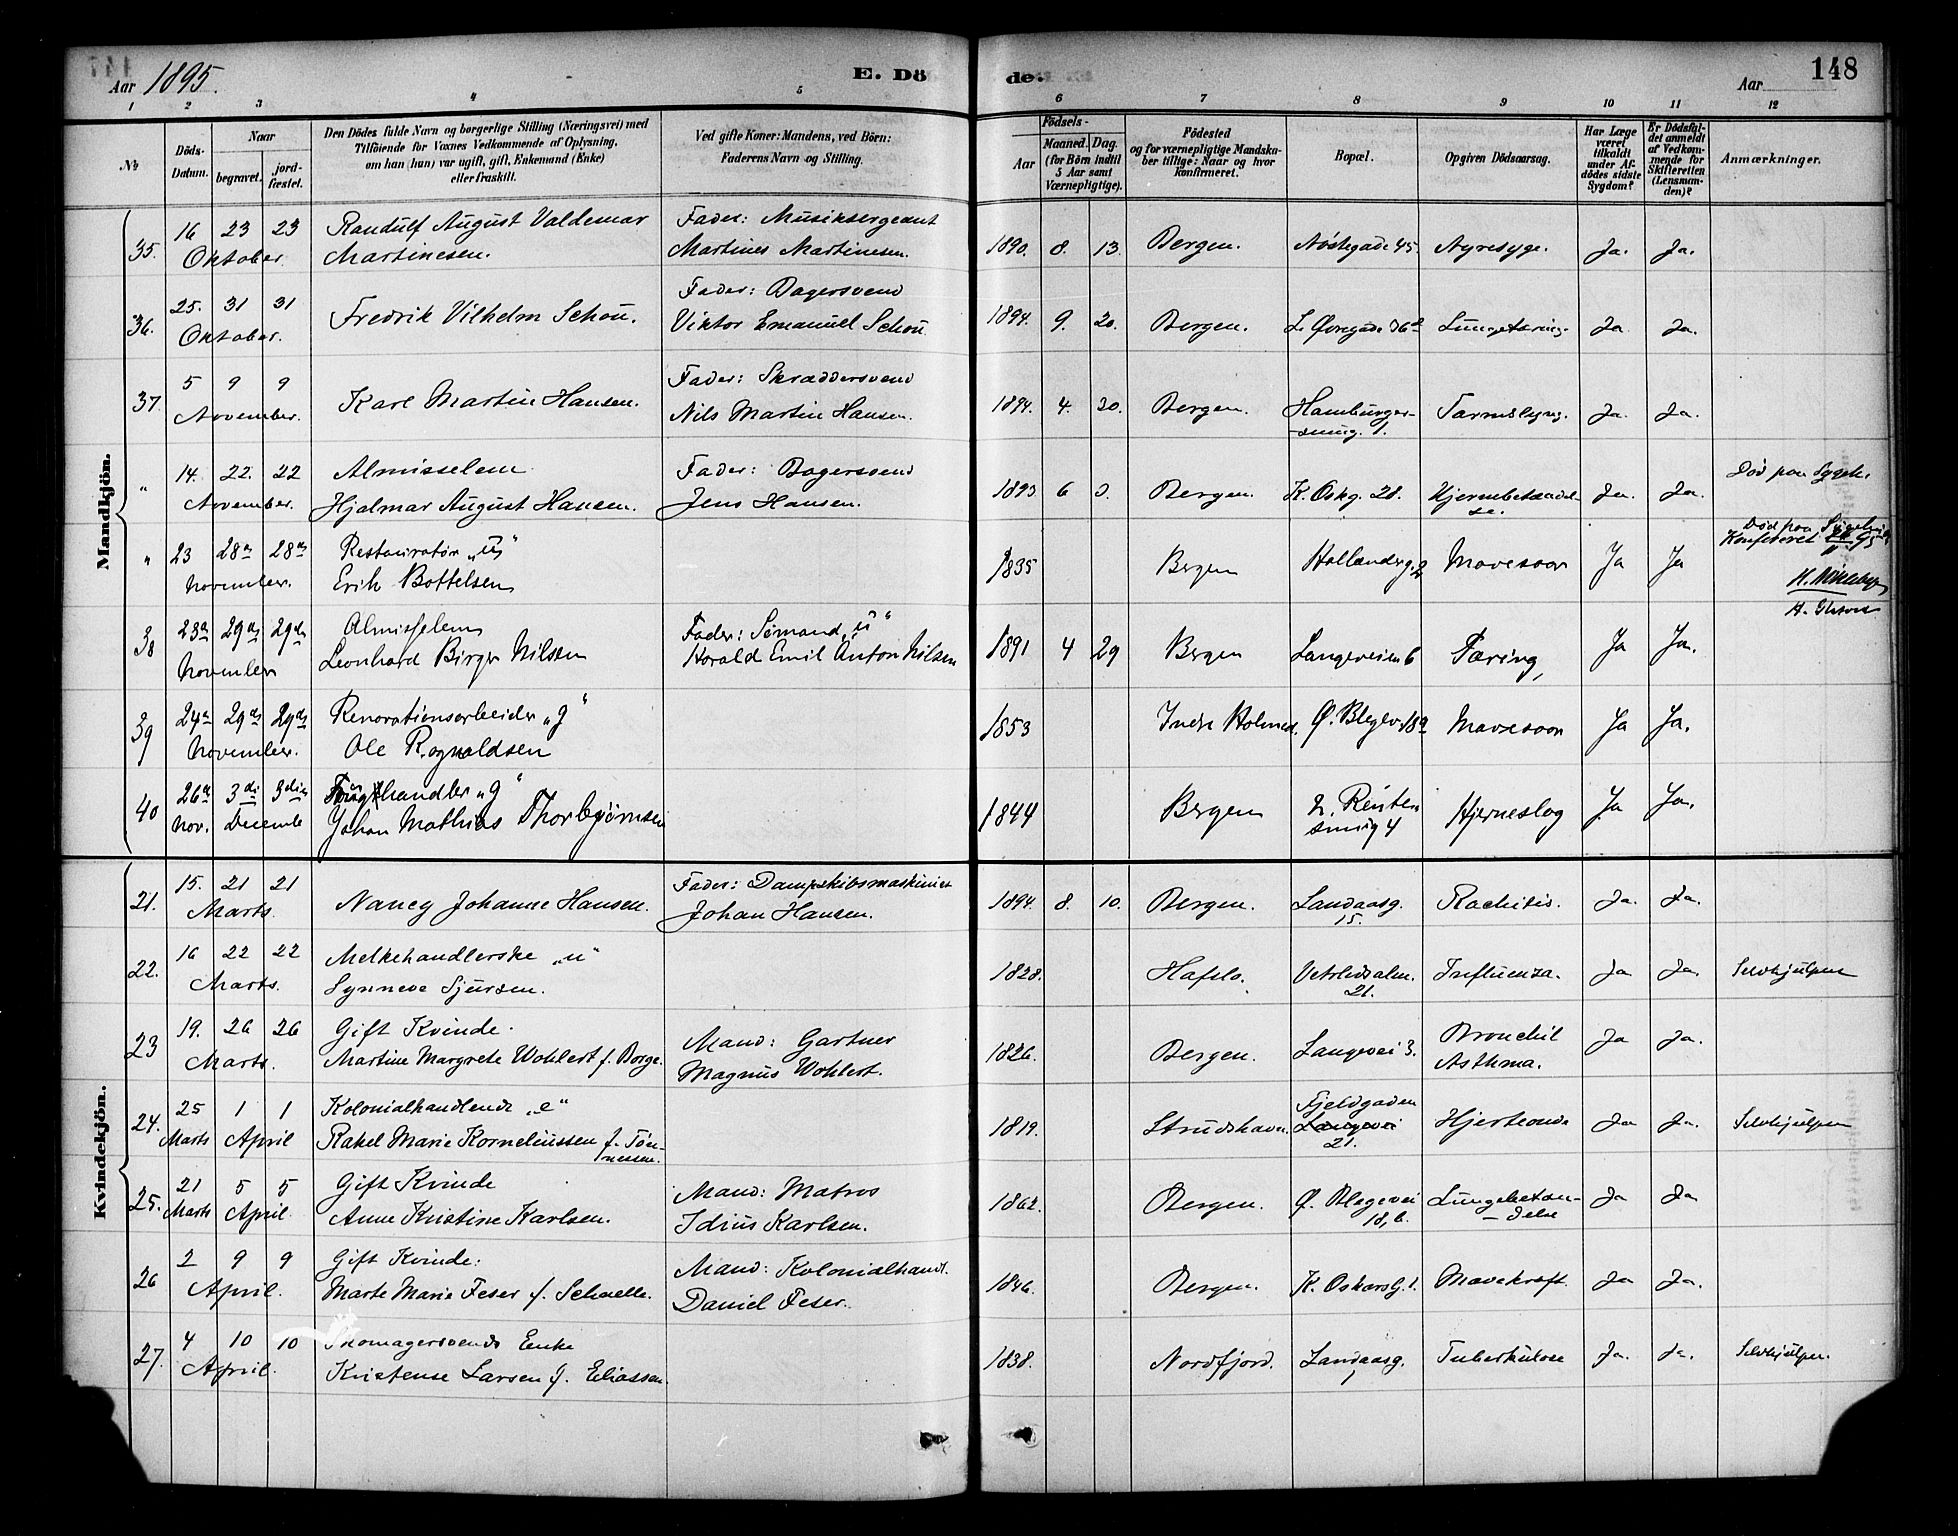 Aar 1895. E. Döde. Aar 148
1 2 3 4 5 6 7 8 9 10 11 12
No
Döds-Datum.
Naar
begravet.
jord-fæstet.
Den Dödes fulde Navn og borgerlige Stilling (Næringsvei) med
Tilföiende for Voxnes Vedkommende af Oplysning,
om han (hun) var ugift, gift, Enkemand (Enke)
eller fraskilt.
Ved gifte Koner: Mandens, ved Börn:
Faderens Navn og Stilling.
Födsels-
Aar
Maaned. Dag.
(for Börn indtil
5 Aar samt
Værnepligtige).
Födested
og for værnepligtige Mandska-
ber tillige: Naar og hvor
konfirmeret.
Bopæl.
Opgiven Dödsaarsag.
Har Læge
været
tilkaldt
under Af-
dödes sidste
Sygdom?
Er Dödsfal-
det anmeldt
af Vedkom-
mende for
Skifteretten
(Lensman-
den)?
Anmærkninger.
Mandkjön.
35. 16 23 23 Randulf August Valdemar Fader: Musiksergeant
Oktober. Martinesen. Martines Martinesen. 1890. 8. 13. Bergen. Nøstegade 45. Nyresyge. Ja. Ja.
36. 25. 31 31 Fredrik Vilhelm Schou. Fader: Bagersvend
Oktober. Viktor Emanuel Schou 1894. 9. 20. Bergen. L. Øvregade 36a Lungetæring. Ja Ja.
37. 5 9 9 Karl Martin Hansen. Fader: Skræddersvend
November. Nils Martin Hansen. 1894. 4. 20. Bergen. Hamburger-
smug. 1. Ja. Ja.
" 14. 22. 22 Almisselem Fader: Bagersvend Død paa Sygeh.
November. Hjalmar August Hansen. Jens Hansen. 1893 6 3. Bergen. K. Oskg. 28. Hjernebetændel
se. Ja. Ja.
" 23 28de 28de Restauratør „u" Død paa
November. Erik Bottelsen 1835 Bergen Hollænderg. 2 Mavesaar Ja Ja Konfereret
38 23de 29de 29de Almisselem Fader: Sømand „u"
November Leonhard Birger Nilsen Harald Emil Anton Nilsen 1891 4 29 Bergen Langeveien 6 Tæring, Ja Ja.
39 24de 29de 29de Renovationsarbeider „g"
November. Ole Rognaldsen 1853 Indre Holmed. Ø. Blegev. 18a Mavesaar Ja Ja.
40 26de 3die 3die handler „g"
Nov. Decembe Johan Mathias Thorbjørnsen 1844 Bergen Smug 4 Hjerneslag Ja Ja.
Kvindekjön.
21. 15. 21 21 Nancy Johanne Hansen. Fader: Dampskibsmaskinist
Marts. Johan Hansen. 1894. 8. 10. Bergen. Landaasg.
15. Rachitis. Ja. Ja.
22. 16 22 22 Melkehandlerske „u"
Marts. Synneve Sjursen. 1828. Hafslo. Vetrlidsalm.
21. Influenza. Ja Ja. Selvhjulpen
23 19. 26 26 Gift Kvinde. Mand: Gartner
Marts. Martine Margrete Wohlert f. Borge. Magnus Wohlert. 1826. Bergen. Langevei 3. Bronchil
Asthma. Ja Ja.
24. 25 1 1 Kolonialhandlende „e" Fjeldgaden
Marts April Rakel Marie Korneliussen f. Tön-
nessen. 1819. Strudshavn. Langevei
21. Hjerteonde Ja Ja. Selvhjulpen
25. 21 5 5 Gift Kvinde Mand: Matros
Marts April. Anne Kristine Karlsen. Idius Karlsen. 1862. Bergen. Ø. Blegevei
18,b. Lungebetæn-
delse Ja Ja
26 2 9 9 Gift Kvinde: Mand: Kolonialhandl.
April. Marte Marie Feser f. Schaelle. Daniel Feser. 1846. Bergen. K. Oskarsg. 1. Mavekræft. Ja Ja.
27. 4 10 10 Skomagersvends Enke
April. Kristense Larsen f. Eliassen. 1838. Nordfjord. Landaasg.
1 Tuberkulose Ja. Ja. Selvhjulpen.